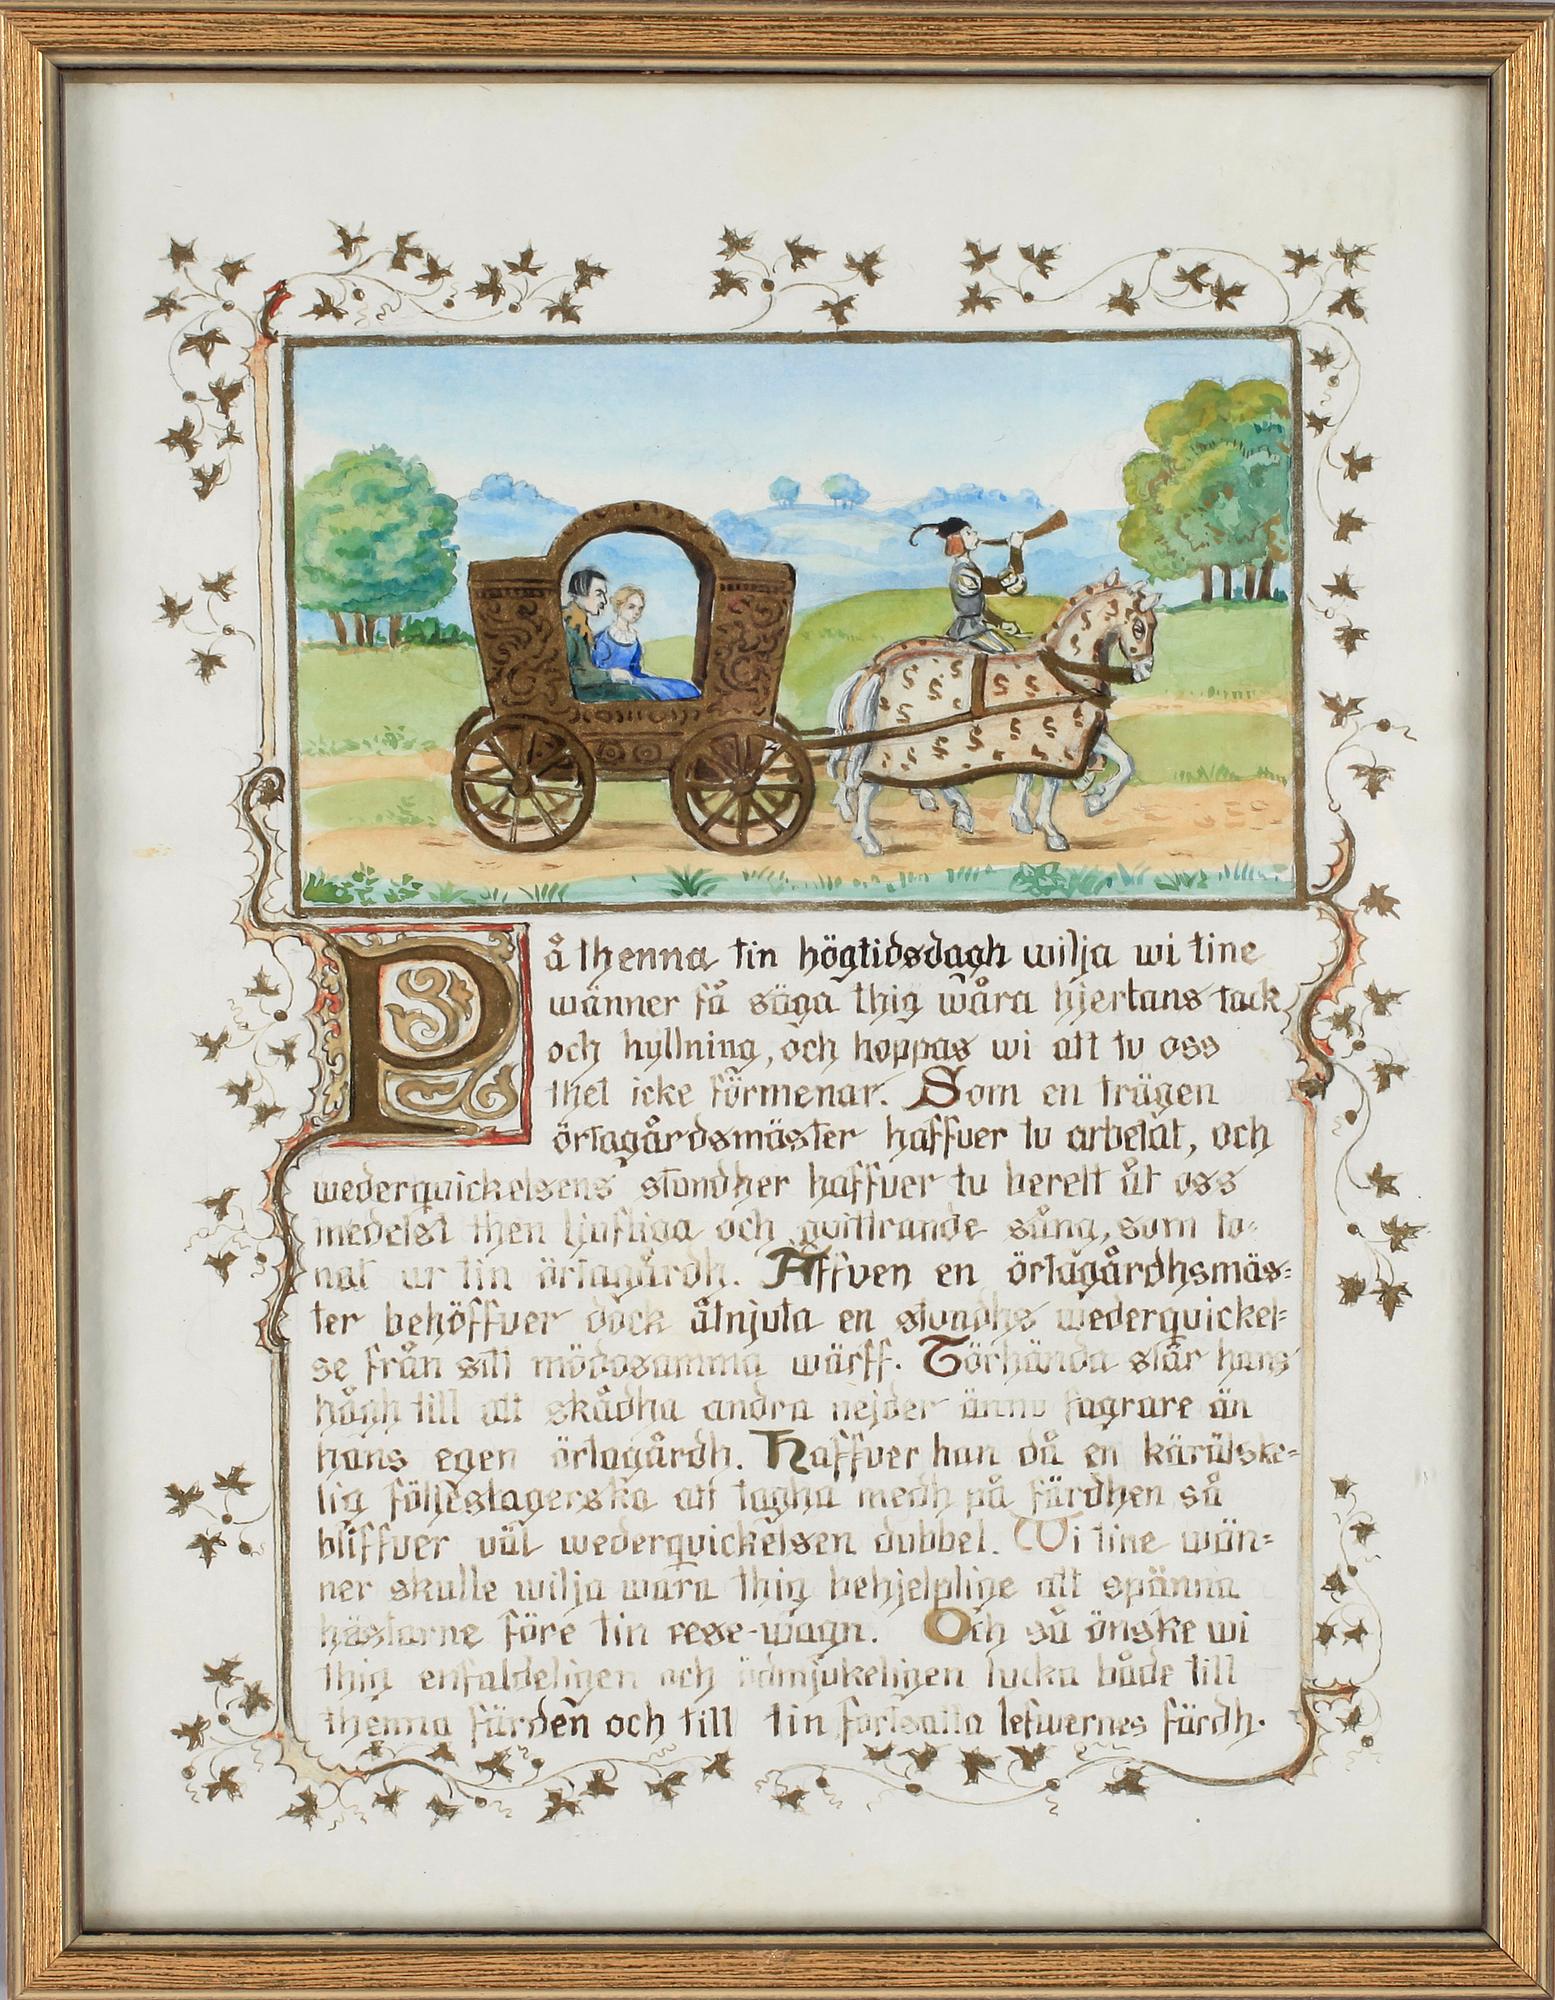 På thenna tin högtidsdagh wilja wi tine
wänner få säga thig wåra hjertans tack
och hyllning, och hoppas wi att tu oss
thet icke förmenar. Som en trägen
örtagårdsmäster haffver tu arbetat, och
wederquickelsens stundher haffver tu berett åt oss
medelst then ljufliga och quittrande sång, som to-
nat ur tin örtagårdh. Äffven en örtagårdhsmäs-
ter behöffver dock åtnjuta en stundhs wederquickel-
se från sitt mödosamma wärff. Törhända står hans
hågh till att skådha andra nejder ännu fagrare än
hans egen örtagårdh. Haffver han då en kärälske-
lig följeslagerska att tagha medh på färdhen så
bliffver väl wederquickelsen dubbel. Wi tine wän-
ner skulle wilja wara thig behjelplige att spänna
hästarne före tin rese-wagn. Och så önske wi
thig enfaldeligen och ödmjukeligen lycka både till
thenna färden och till tin fortsatta lefwernes färdh.